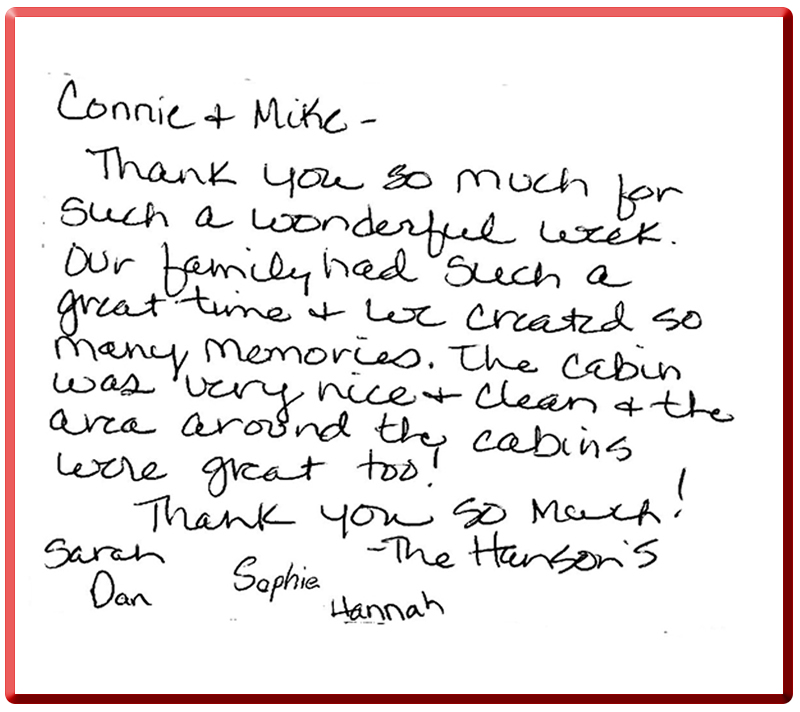 Connie & Mike -
Thank you so much for
such a wonderful week.
Our family had such a
great time & we created so
many memories. The cabin
was very nice & clean & the
area around they cabins
were great too!
Thank you so much!
- The Hanson's
Sarah
Dan
Sophie
Hannah